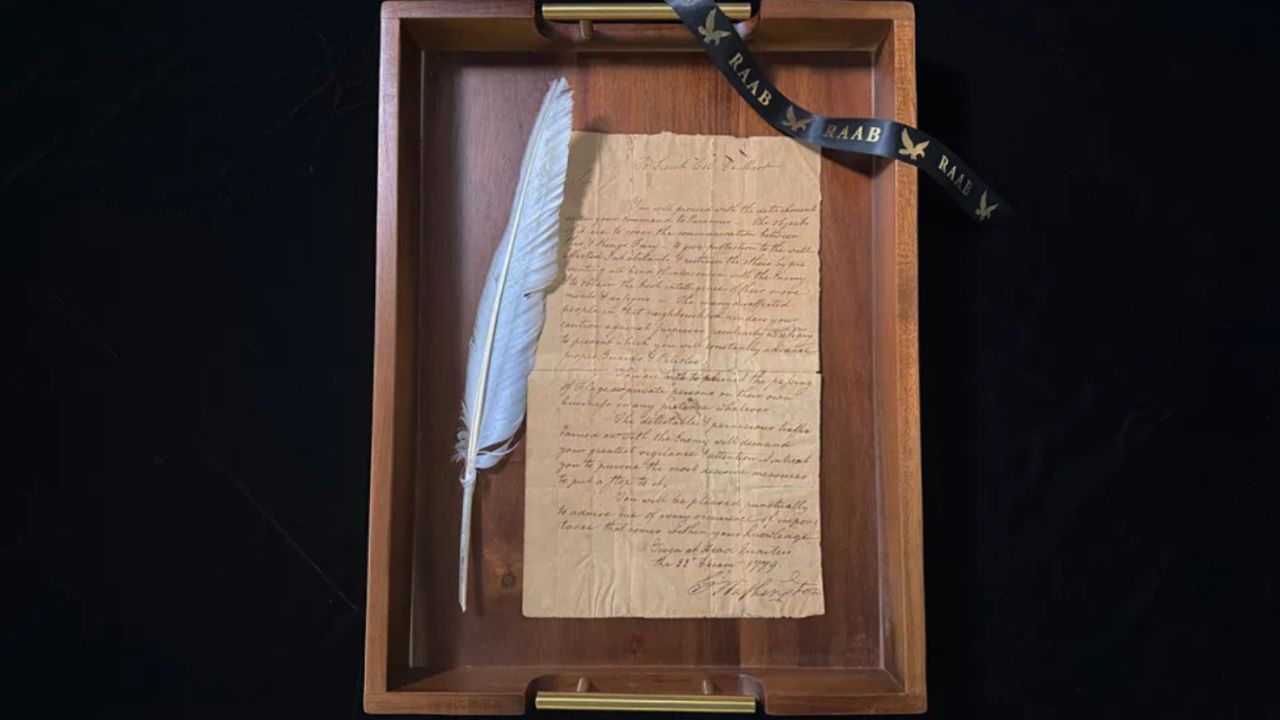 RAAB
RAAB
RAAB
To Lieut Col De Hart
You will proceed with the detachment
under your command to Paramus — The objects
of it are to cover the communication between
this & Kings Ferry — to give protection to the well
affected Inhabitants & restrain the others by pre
venting all kind of intercourse with the Enemy
& to obtain the best intelligence of their move
ments & designs — The many disaffected
people in that neighbourhood renders your
caution against surprises peculiarly necessary
to prevent which you will constantly advance
proper Guards & Patroles.
You are not to permit the passing
of Flags or private persons on their own
business on any pretence whatever
The detestable & pernicious traffic
carried on with the Enemy will demand
your greatest vigilance & attention. I intreat
you to pursue the most decisive measures
to put a stop to it.
You will be pleased punctually
to advise me of every occurrence of impor
tance that comes within your knowledge
Given at Head Quarters
the 22d Decemr 1779
G Washington